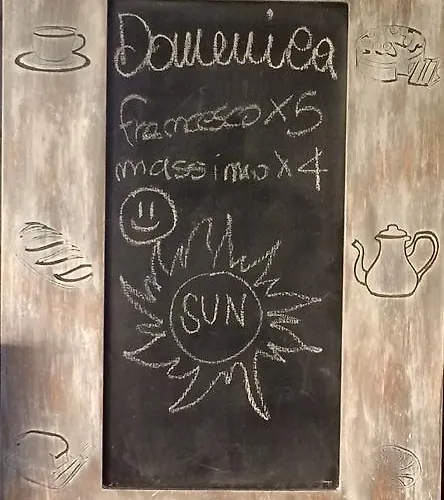 Domenica
francesco x5
massimo x4
SUN